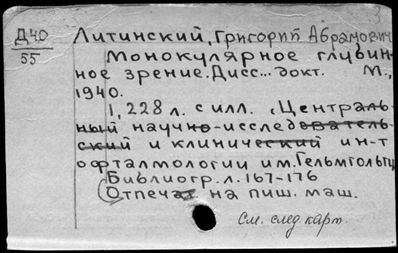 Д40
55
Литинский, Григорий Абрамович
Монокулярное глубин-
ное зрение. Дисс... докт. М.,
1940.
1, 228 л. с илл. (Централь-
ный научно-исследователь-
ский и клинический ин-т
офталмологии им. Гельмгольтц
Библиогр. л. 167-176
Отпечат на пиш. маш.
См. след карт.